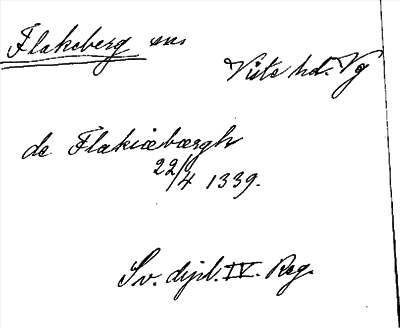 Flakeberg sn
Viste hd. Vg
de Flakiæbærgh
22/4 1339.
Sv. dipl. IV. Reg.